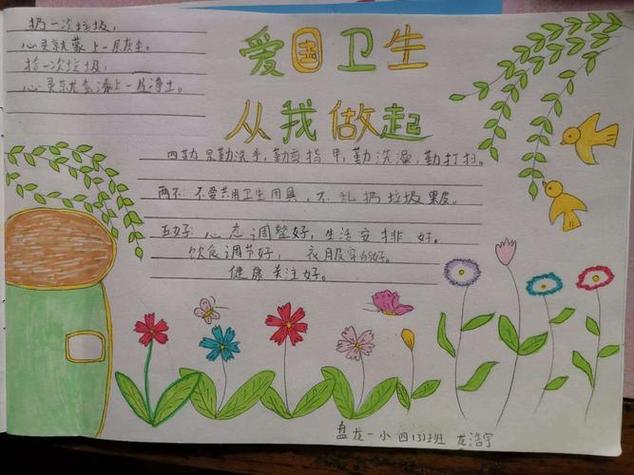 扔一次垃圾，
心灵就蒙上一层灰尘。
捡一次垃圾，
心灵就会添上一片净土。
爱国卫生
从我做起
四勤：勤洗手，勤剪指甲，勤洗澡，勤打扫。
两不：不要共用卫生用具，不乱扔垃圾果皮。
五好：心态调整好，生活安排好。
饮食调节好，衣服穿好。
健康关注好。
盘龙一小四(3)班 龙浩宇